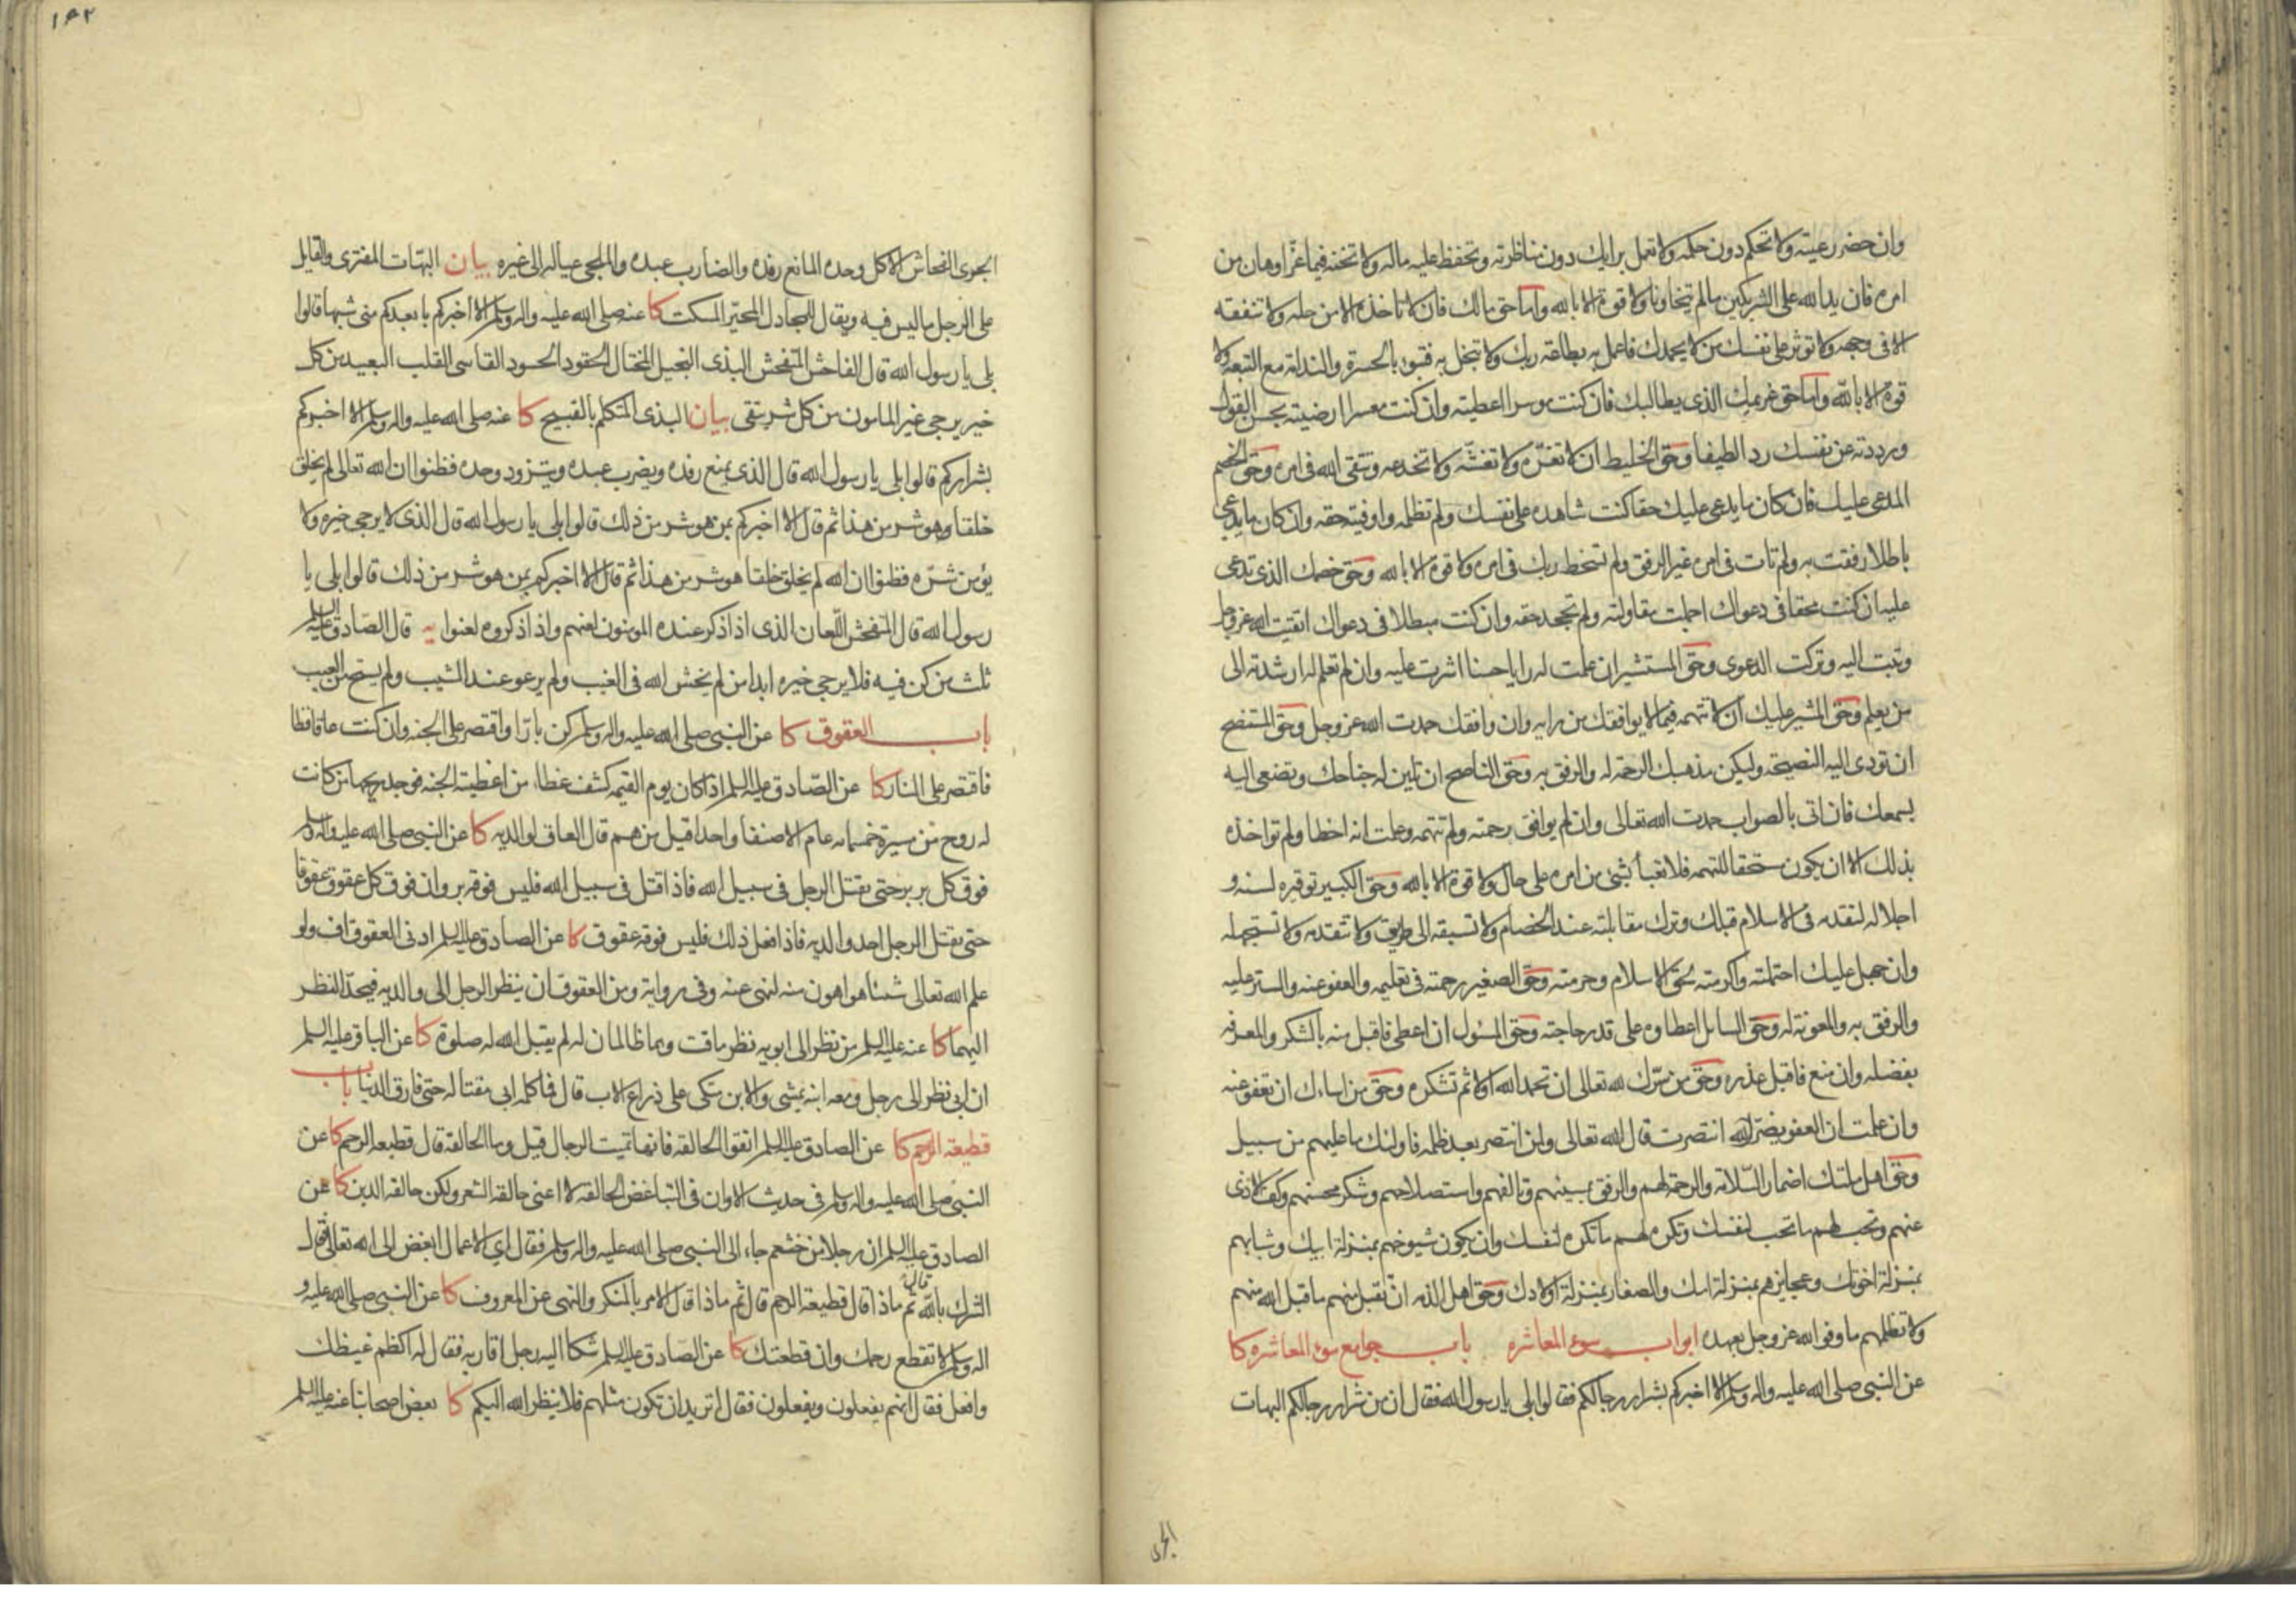 وان حضر رعيته ولا تحكم دون حكمه ولا تعمل برايك دون مناظرته وتحفظ عليه ماله ولا تخنه فيما عزّ او هان من
امره فان يد الله على الشريكين ما لم يتخاونا ولا قوة الا بالله واما حق مالك فان لا تاخذه الا من حله ولا تنفقه
الا فى وجهه ولا توثر على نفسك من لا يحمدك فاعمل به بطاعة ربك ولا تبخل به فتبوء بالحسرة والندامة مع التبعه ولا
قوة الا بالله واما حق غريمك الذى يطالبك فان كنت موسرا اعطيته وان كنت معسرا ارضيته بحسن القول
ورددته عن نفسك ردا لطيفا وحق الخليط ان لا تغرّه ولا تغشّه ولا تخدعه وتتقى الله فى امره وحق الخصم
المدعى عليك فان كان ما يدعى عليك حقا كنت شاهده على نفسك ولم تظلمه واوفيته حقه وان كان ما يدعى
باطلا رفقت به ولم تات فى امره غير الرفق ولم تسخط ربك فى امره ولا قوة الا بالله وحق خصمك الذى تدعى
عليه ان كنت محقا فى دعواك اجملت مقاولته ولم تجحد حقه وان كنت مبطلا فى دعواك اتقيت الله عزوجل
وتبت اليه وتركت الدعوى وحق المستشير ان علمت له رايا حسنا اشرت عليه وان لم تعلم له ارشدته الى
من يعلم وحق المشير عليك ان لا تتهمه فيما لا يوافقك من رايه وان وافقك حمدت الله عز وجل وحق المستنصح
ان تودى اليه النصيحة وليكن مذهبك الرحمة له والرفق به وحق الناصح ان تلين له جناحك وتصغى اليه
بسمعك فان اتى بالصواب حمدت الله تعالى وان لم يوافق رحمته ولم تتهمه وعلمت انه اخطا ولم تواخذه
بذلك الا ان يكون مستحقا للتهمه فلا تعبأ بشئ من امره على حال ولا قوة الا بالله وحق الكبير توقيره لسنه و
اجلاله لتقدمه فى الاسلام قبلك وترك مقابلته عند الخصام ولا تسبقه الى طريق ولا تتقدمه ولا تستجهله
وان جهل عليك احتملته واكرمته لحق الاسلام وحرمته وحق الصغير رحمته فى تعليمه والعفو عنه والستر عليه
والرفق به والمعونة له وحق السايل اعطاوه على قدر حاجته وحق المسؤل ان اعطى فاقبل منه بالشكر والمعرفه
بفضله وان منع فاقبل عذره وحق من سّرك لله تعالى ان تحمد الله اولا ثم تشكره وحق من اساءك ان تعفو عنه
وان علمت ان العفو يضرّ انتصرت قال الله تعالى ولمن انتصر بعد ظلمه فاولئك ما عليهم من سبيل
وحق اهل ملتك اضمار السّلامة والرحمة لهم والرفق بمسيئهم وتالفهم واستصلاحهم وشكر محسنهم وكف الاذى
عنهم وتحب لهم ما تحب لنفسك وتكره لهم ما تكره لنفسك وان يكون شيوخهم بمنزلة ابيك وشبابهم
بمنزلة اخوتك وعجايزهم بمنزلة امك والصغار بمنزلة اولادك وحق اهل الذمه ان تقبل منهم ما قبل الله منهم
ولا تظلمهم ما وفوا لله عز وجل بعهده ابواب سوء المعاشره باب جوامع سوء المعاشره كا
عن النبى صلى الله عليه واله وسلم الا اخبركم بشرار رجالكم فقالوا بلى يا رسول الله فقال ان من شرار رجالكم البهات
الجرى
١٩٢
الجرى الفحاش الاكل وحده المانع رفده والضارب عبده والملجى عياله الى غيره بيان البهّات المفترى والقايل
على الرجل ما ليس فيه ويقال للمجادل المحيّر المسكت كا عنه صلى الله عليه واله وسلم الا اخبركم بابعدكم منى شبها قالوا
بلى يا رسول الله قال الفاحش المتفحش البذى البخيل المختال الحقود الحسود القاسى القلب البعيد من كل
خير يرجى غير المامون من كل شر يتقى بيان البذى المتكلم بالقبيح كا عنه صلى الله عليه واله وسلم الا اخبركم
بشراركم قالوا بلى يا رسول الله قال الذى يمنع رفده ويضرب عبده ويتزود وحده فظنوا ان الله تعالى لم يخلق
خلقا وهو شر من هذا ثم قال الا اخبركم بمن هو شر من ذلك قالوا بلى يا رسول الله قال الذى لا يرجى خيره ولا
يؤمن شرّه فظنوا ان الله لم يخلق خلقا هو شر من هذا ثم قال الا اخبركم بمن هو شر من ذلك قالوا بلى يا
رسول الله قال المتفحش اللّعان الذى اذا ذكر عنده المومنون لعنهم واذا ذكروه لعنوا يه قال الصّادق عليه السلم
ثلث من كن فيه فلا يرجى خيره ابدا من لم يخش الله فى الغيب ولم يرعو عند الشيب ولم يستح من العيب
باب العقوق كا عن النبى صلى الله عليه واله وسلم كن بارّا واقتصر على الجنه وان كنت عاقا فظا
فاقتصر على النار كا عن الصّادق عليه السلم اذا كان يوم القيمه كشف غطاء من اغطية الجنه فوجد ريحها من كانت
له روح من مسيرة خمسمائه عام الا صنفا واحدا قيل من هم قال العاق لوالديه كا عن النبى صلى الله عليه واله وسلم
فوق كل بر بر حتى يقتل الرجل فى سبيل الله فاذا قتل فى سبيل الله فليس فوقه بر وان فوق كل عقوق عقوقا
حتى يقتل الرجل احد والديه فاذا فعل ذلك فليس فوقه عقوق كا عن الصادق عليه السلم ادنى العقوق اف ولو
علم الله تعالى شيئا هو اهون منه لنهى عنه وفى رواية ومن العقوق ان ينظر الرجل الى والديه فيحدّ النظر
اليهما كا عنه عليه السلم من نظر الى ابويه نظر ماقت وهما ظالمان له لم يقبل الله له صلوة كا عن الباقر عليه السلم
ان ابى نظر الى رجل ومعه ابنه يمشى والابن متكى على ذراع الاب قال فما كلمه ابى مقتا له حتى فارق الدنيا باب
قطيعة الرحم كا عن الصادق عليه السلم اتقوا الحالقه فانها تميت الرجال قيل وما الحالقة قال قطيعه الرحم كا عن
النبى صلى الله عليه واله وسلم فى حديث الا وان فى التباغض الحالقه لا اعنى حالقة الشعر ولكن حالقه الدين كا عن
الصادق عليه السلم ان رجلا من خثعم جاء الى النبى صلى الله عليه واله وسلم فقال اى الاعمال ابغض الى الله تعالى فقال
الشرك بالله قال ثم ماذا قال قطيعة الرحم قال ثم ماذا قال الامر بالمنكر والنهى عن المعروف كا عن النبى صلى الله عليه و
اله وسلم لا تقطع رحمك وان قطعتك كا عن الصّادق عليه السلم شكا اليه رجل اقاربه فقال له اكظم غيظك
وافعل فقال انهم يفعلون ويفعلون فقال اتريد ان تكون مثلهم فلا ينظر الله اليكم كا بعض اصحابنا عنه عليه السلم